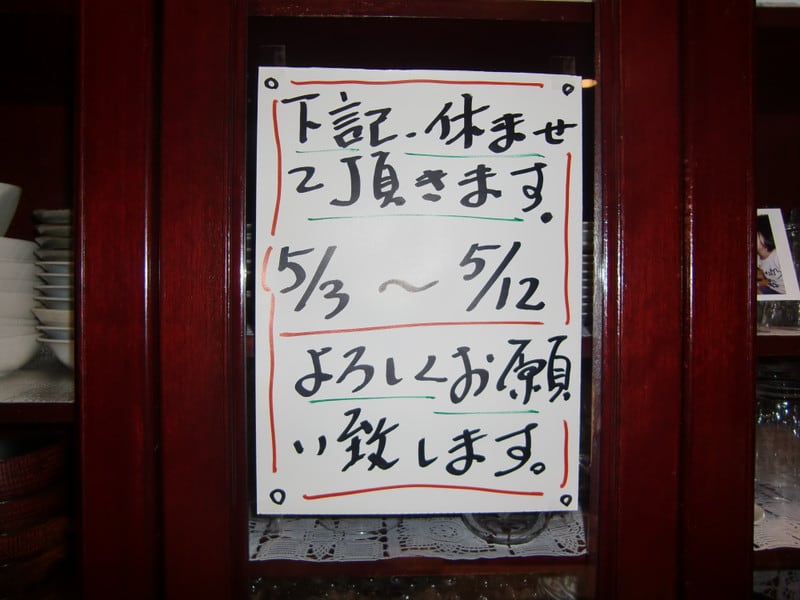 下記、休ませ
て頂きます。
5/3 〜 5/12
よろしくお願
い致します。